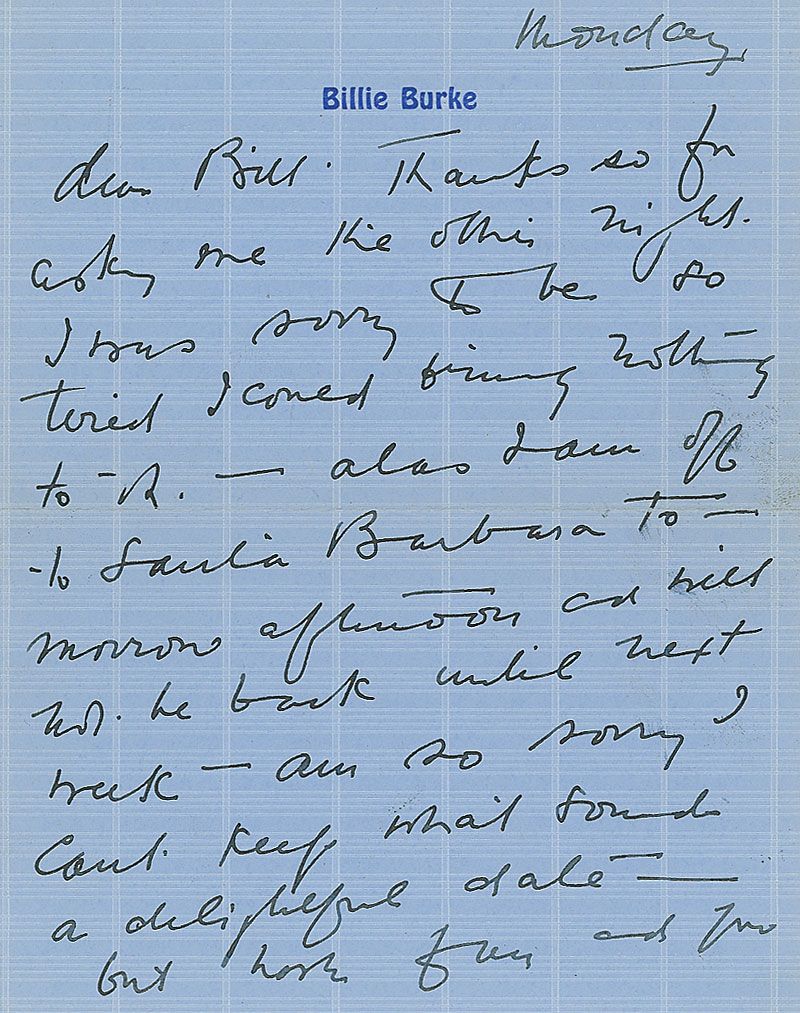 Monday
Billie Burke
dear Bill. Thanks so for
asking me the other night.
I was sorry to be so
tired I coned nothing
to - R. — alas I am off
to Santa Barbara to —
morrow afternoon and will
not be back until next
week — am so sorry I
cant keep what sounds
a delightful date —
but have fun and you